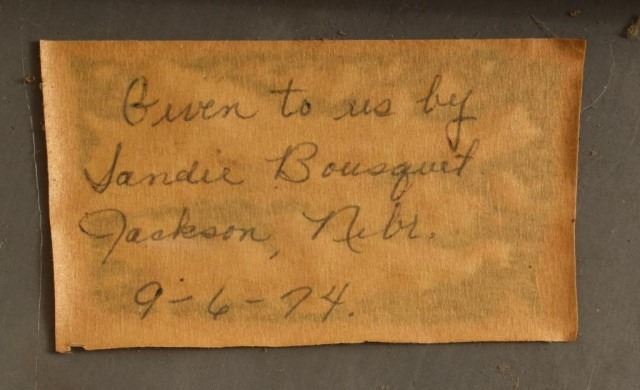 Given to us by
Sandie Bousquet
Jackson, Nebr.
9-6-74.